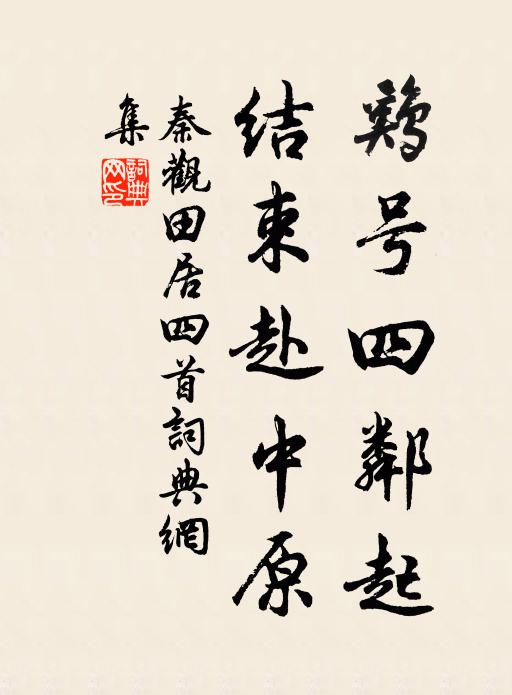 鷄号四鄰起
結束赴中原
秦觀田居四首詞典網
集
詞典網印